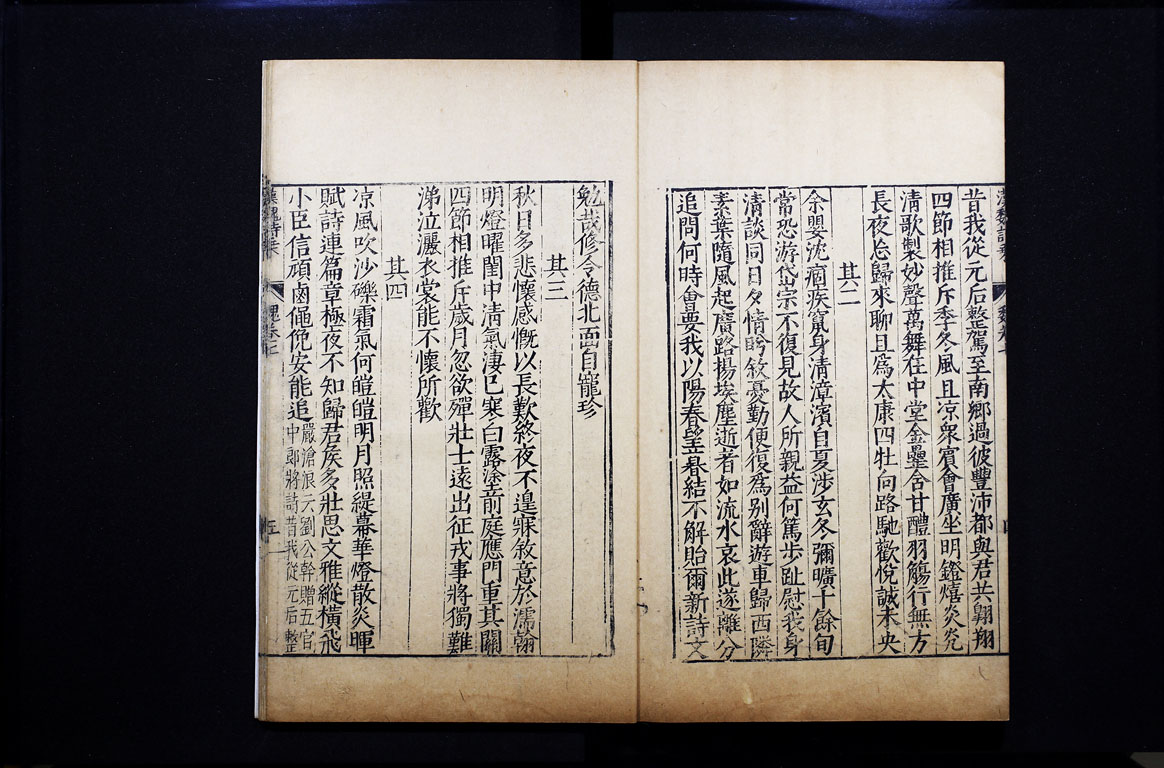 昔我從元后整駕至南鄉過彼豐沛都與君共翱翔
四節相推斥季冬風且凉衆賓會廣坐明鐙熺炎光
清歌製妙聲萬舞在中堂金罍含甘醴羽觴行無方
長夜忘歸來聊且爲太康四牡向路馳歡悅誠未央
其二
余嬰沈痼疾竄身清漳濱自夏涉玄冬彌曠十餘旬
常恐游岱宗不復見故人所親益何篤步趾慰我身
清談同日夕情眄敘憂勤便復爲別辭遊車歸西隣
素葉隨風起廣路揚埃塵逝者如流水哀此遂離分
追問何時會要我以陽春望慕結不解貽爾新詩文
勉哉修令德北面自寵珍
其三
秋日多悲懷感慨以長歎終夜不遑寐敘意於濡翰
明燈曜閨中清氣凄已寒白露塗前庭應門重其關
四節相推斥歲月忽欲殫壯士遠出征戎事將獨難
涕泣灑衣裳能不懷所歡
其四
凉風吹沙礫霜氣何皚皚明月照緹幕華燈散炎暉
賦詩連篇章極夜不知歸君侯多壯思文雅縱橫飛
小臣信頑鹵僶俛安能追
嚴滄浪云劉公幹贈五官
中郎將詩昔我從元后整
五